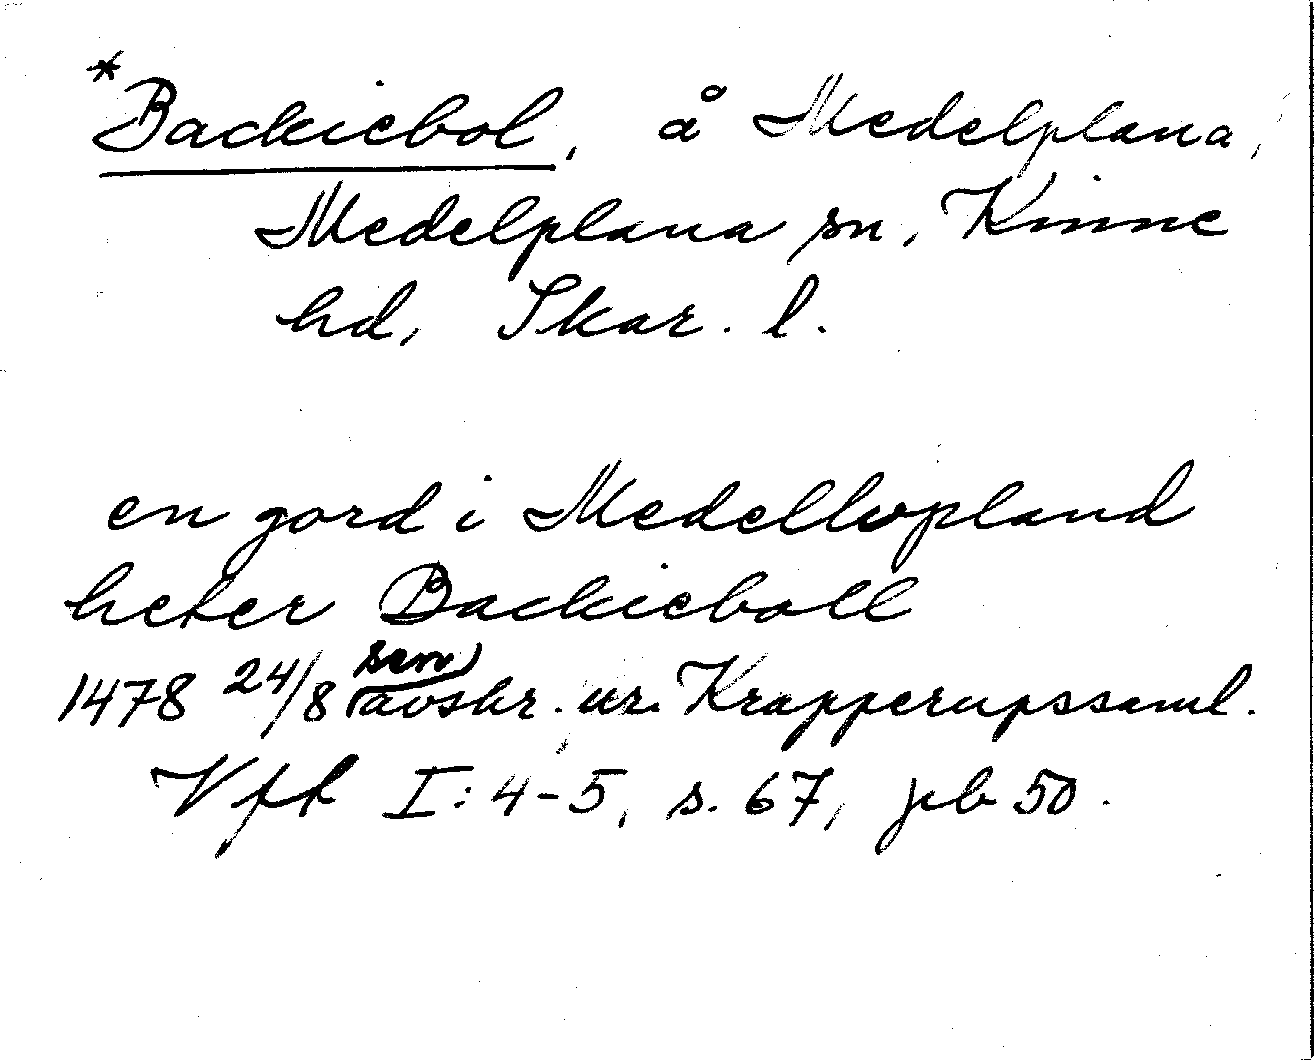 *Backiebol, å Medelplana,
Medelplana sn, Kinne
hd, Skar. l.
en gord i Medellvpland
heter Backieboll
1478 24/8 sen avskr. ur Krapperupssaml.
Vft I: 4-5, s. 67, pb 50.